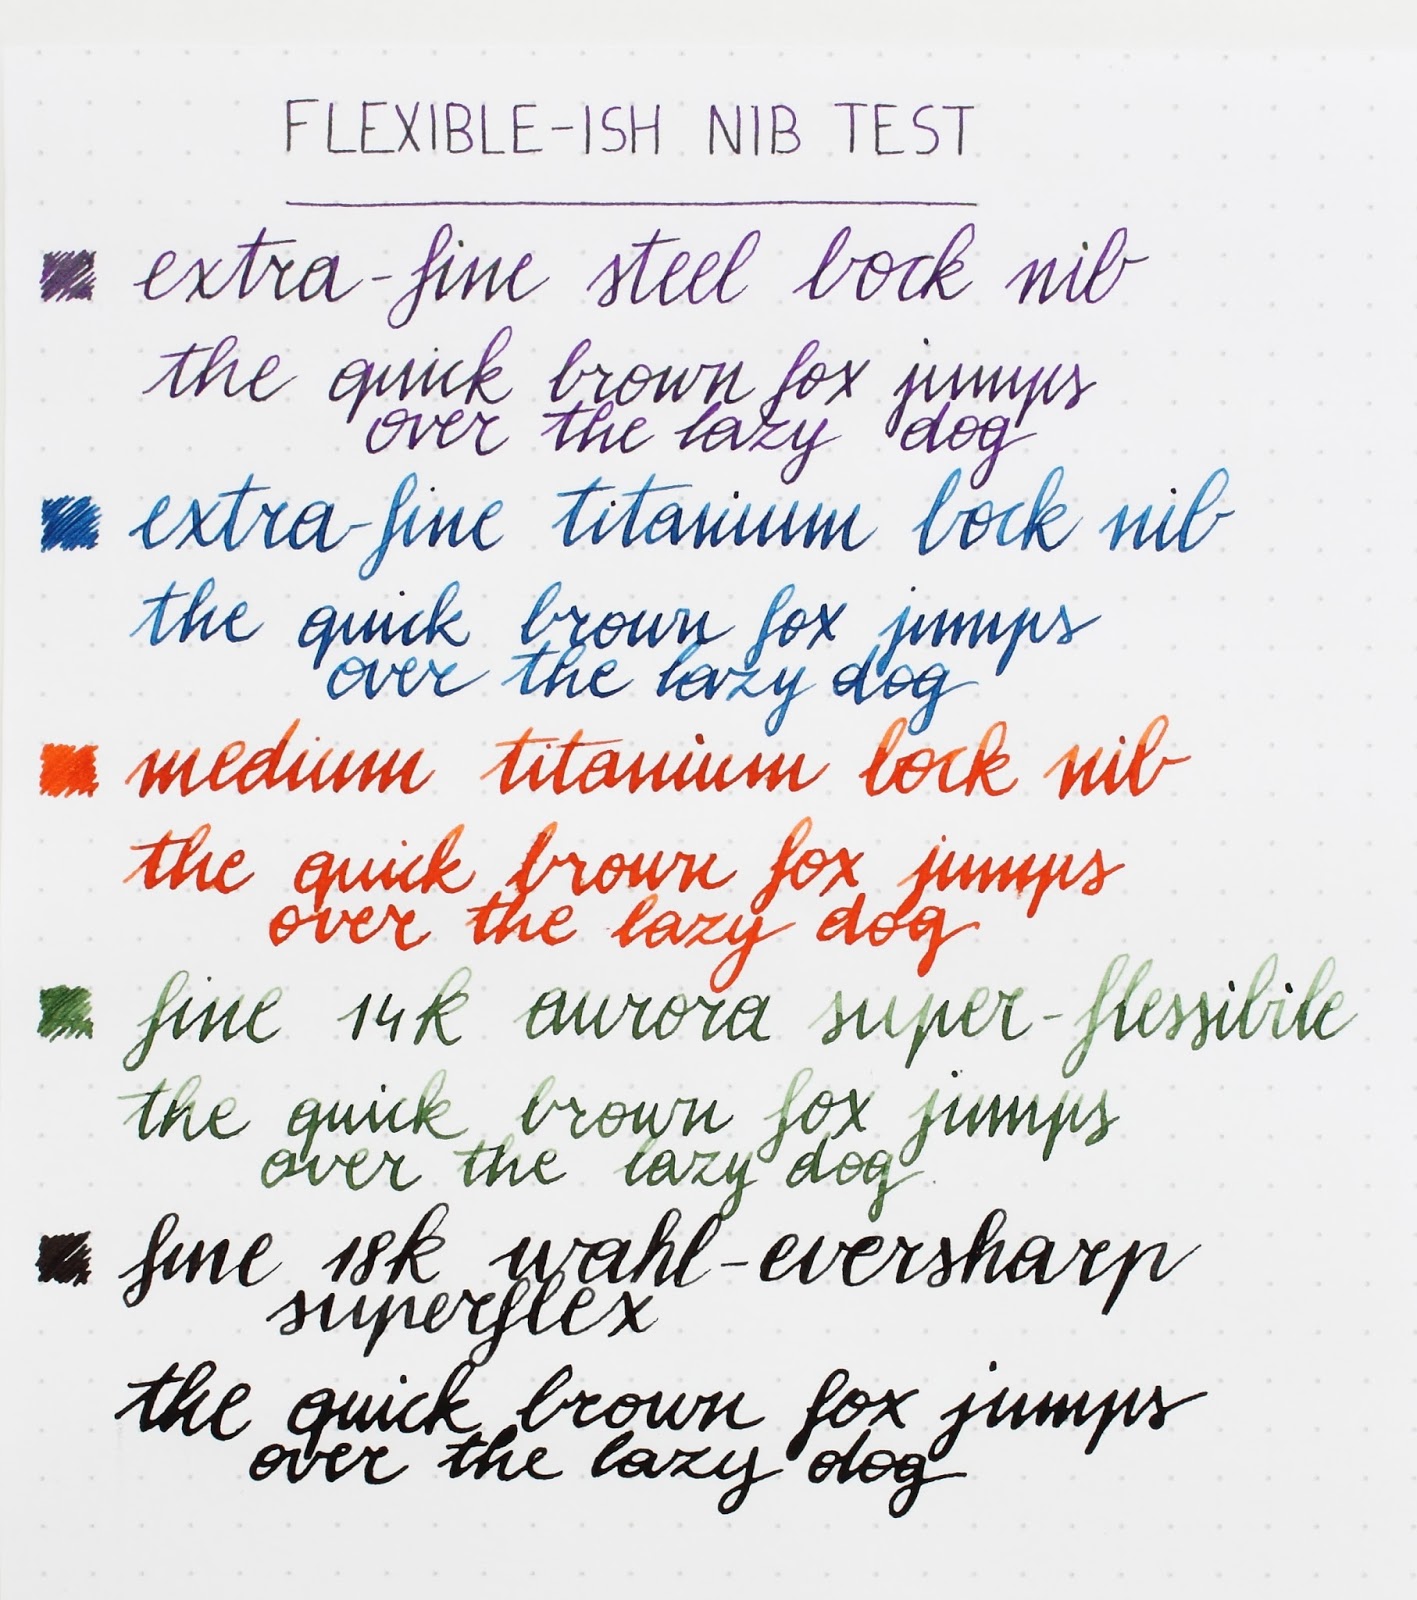 FLEXIBLE-ISH NIB TEST
extra-fine steel bock nib
the quick brown fox jumps
over the lazy dog
extra-fine titanium bock nib
the quick brown fox jumps
over the lazy dog
medium titanium bock nib
the quick brown fox jumps
over the lazy dog
fine 14k aurora super-flessibile
the quick brown fox jumps
over the lazy dog
fine 18k wahl-eversharp
superflex
the quick brown fox jumps
over the lazy dog